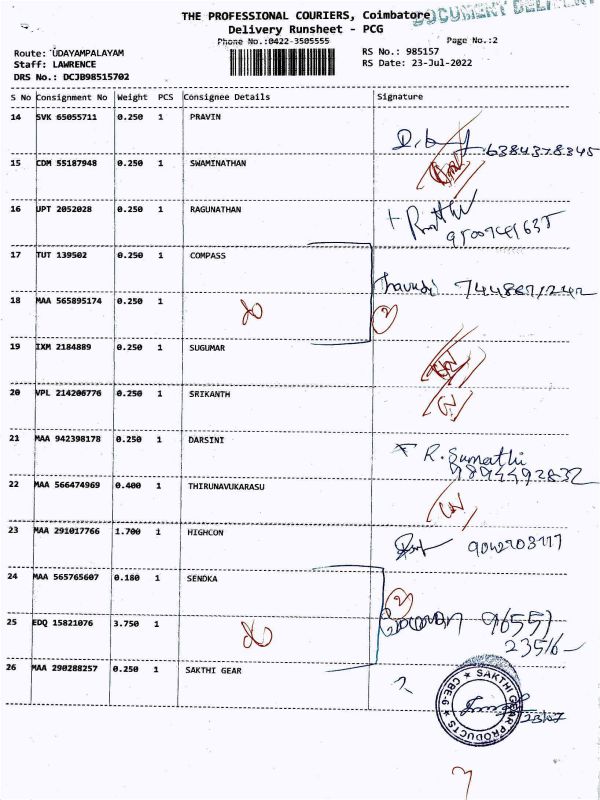 THE PROFESSIONAL COURIERS, Coimbatore
DOCUMENT
Delivery Runsheet - PCG
Phone No.:0422-3505555
Page No.:2
Route: UDAYAMPALAYAM
RS No.: 985157
Staff: LAWRENCE
RS Date: 23-Jul-2022
DRS No.: DCJB98515702
S No Consignment No Weight PCS Consignee Details Signature
14 SVK 65055711 0.250 1 PRAVIN
6384378345
15 CDM 55187948 0.250 1 SWAMINATHAN
16 UPT 2052028 0.250 1 RAGUNATHAN
17 TUT 139502 0.250 1 COMPASS
18 MAA 565895174 0.250 1
2
19 IXM 2184889 0.250 1 SUGUMAR
20 VPL 214206776 0.250 1 SRIKANTH
21 MAA 942398178 0.250 1 DARSINI
R. Sumathi
22 MAA 566474969 0.400 1 THIRUNAVUKARASU
23 MAA 291017766 1.700 1 HIGHCON
24 MAA 565765607 0.180 1 SENDKA
2
25 EDQ 15821076 3.750 1
96551
23516
26 MAA 290288257 0.250 1 SAKTHI GEAR
SAKTHI GEAR PRODUCTS
CBE-6